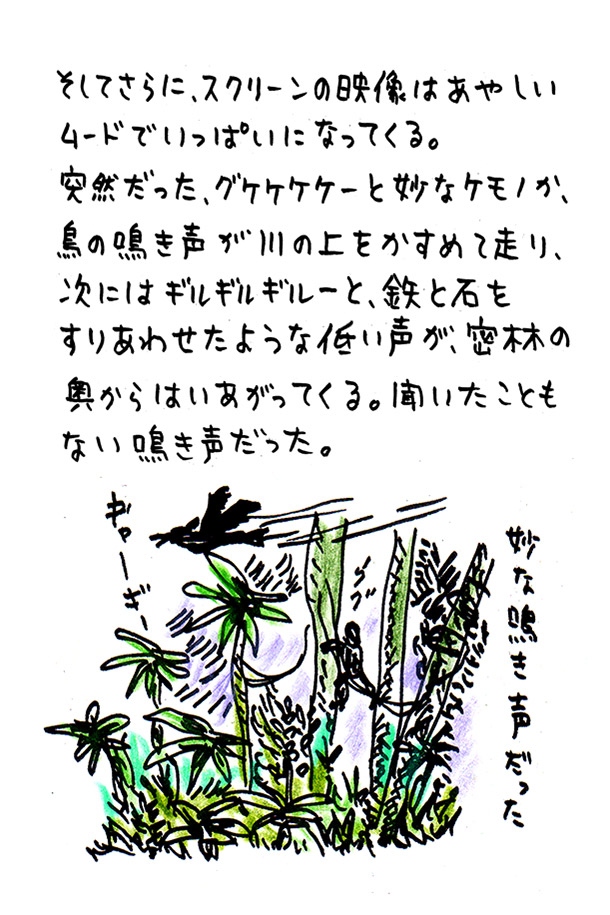 そしてさらに、スクリーンの映像はあやしい
ムードでいっぱいになってくる。
突然だった、グケケケケーと妙なケモノか、
鳥の鳴き声が川の上をかすめて走り、
次にはギルギルギルーと、鉄と石を
すりあわせたような低い声が、密林の
奥からはいあがってくる。聞いたことも
ない鳴き声だった。
ギャーギー
ググ
妙な鳴き声だった